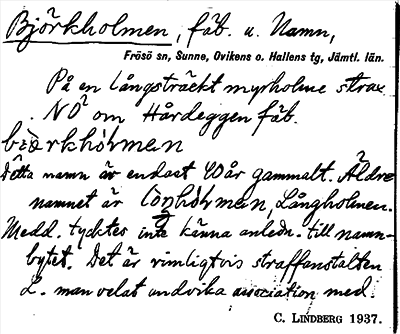 Björkholmen, fäb. u. Namn,
Frösö sn, Sunne, Ovikens o. Hallens tg, Jämtl. län.
På en långsträckt myrholme strax
NÖ om Hårdeggen fäb.
Detta namn är endast 40 år gammalt. Äldre
namnet är Långholmen.
Medd. tycktes inte känna anledn. till namn-
bytet. Det är rimligtvis straffanstalten
L. man velat undvika association med.
C. LINDBERG 1937.